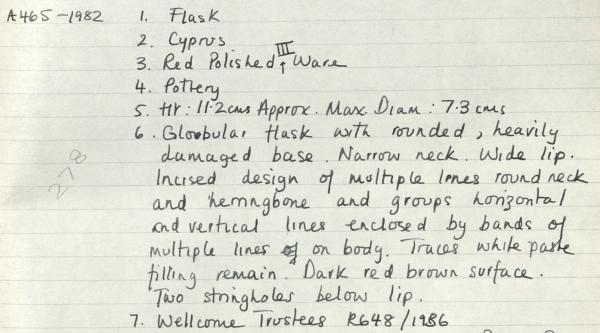 A465-1982 1. Flask
2. Cyprus
3. Red Polished III Ware
4. Pottery
5. Ht: 11.2cms Approx. Max Diam: 7.3 cms
6. Globular flask with rounded, heavily
damaged base. Narrow neck. Wide lip.
Incised design of multiple lines round neck
and herringbone and groups horizontal
and vertical lines enclosed by bands of
multiple lines on body. Traces white paste
filling remain. Dark red brown surface.
Two stringholes below lip.
7. Wellcome Trustees R648/1986
278